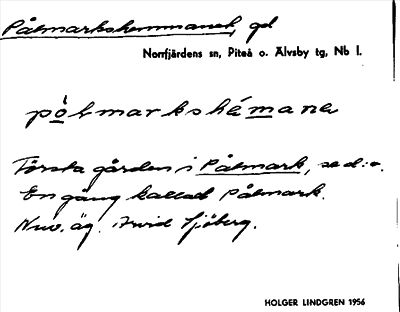 Pålmarkshemmanet, gd
Norrfjärdens sn, Piteå o. Älvsby tg, Nb l.
pòlmarkshámana
Första gården i Pålmark, se d:o.
En gång kallad Pålmark.
Nuv. äg. Arvid Sjöberg.
HOLGER LINDGREN 1956